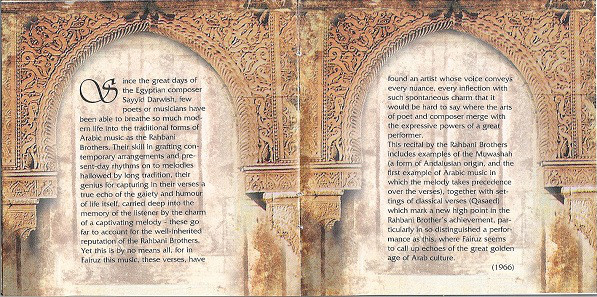 Since the great days of
the Egyptian composer
Sayyid Darwish, few
poets or musicians have
been able to breathe so much mod-
ern life into the traditional forms of
Arabic music as the Rahbani
Brothers. Their skill in grafting con-
temporary arrangements and pre-
sent-day rhythms on to melodies
hallowed by long tradition, their
genius for capturing in their verses a
true echo of the gaiety and humour
of life itself, carried deep into the
memory of the listener by the charm
of a captivating melody - these go
far to account for the well-inherited
reputation of the Rahbani Brothers.
Yet this is by no means all, for in
Fairuz this music, these verses, have
found an artist whose voice conveys
every nuance, every inflection with
such spontaneous charm that it
would be hard to say where the arts
of poet and composer merge with
the expressive powers of a great
performer.
This recital by the Rahbani Brothers
includes examples of the Muwashah
(a form of Andalusian origin, and the
first example of Arabic music in
which the melody takes precedence
over the verses), together with set-
tings of classical verses (Qasaed)
which mark a new high-point in the
Rahbani Brother's achievement, par-
ticularly in so distinguished a perfor-
mance as this, where Fairuz seems
to call up echoes of the great golden
age of Arab culture.
(1966)